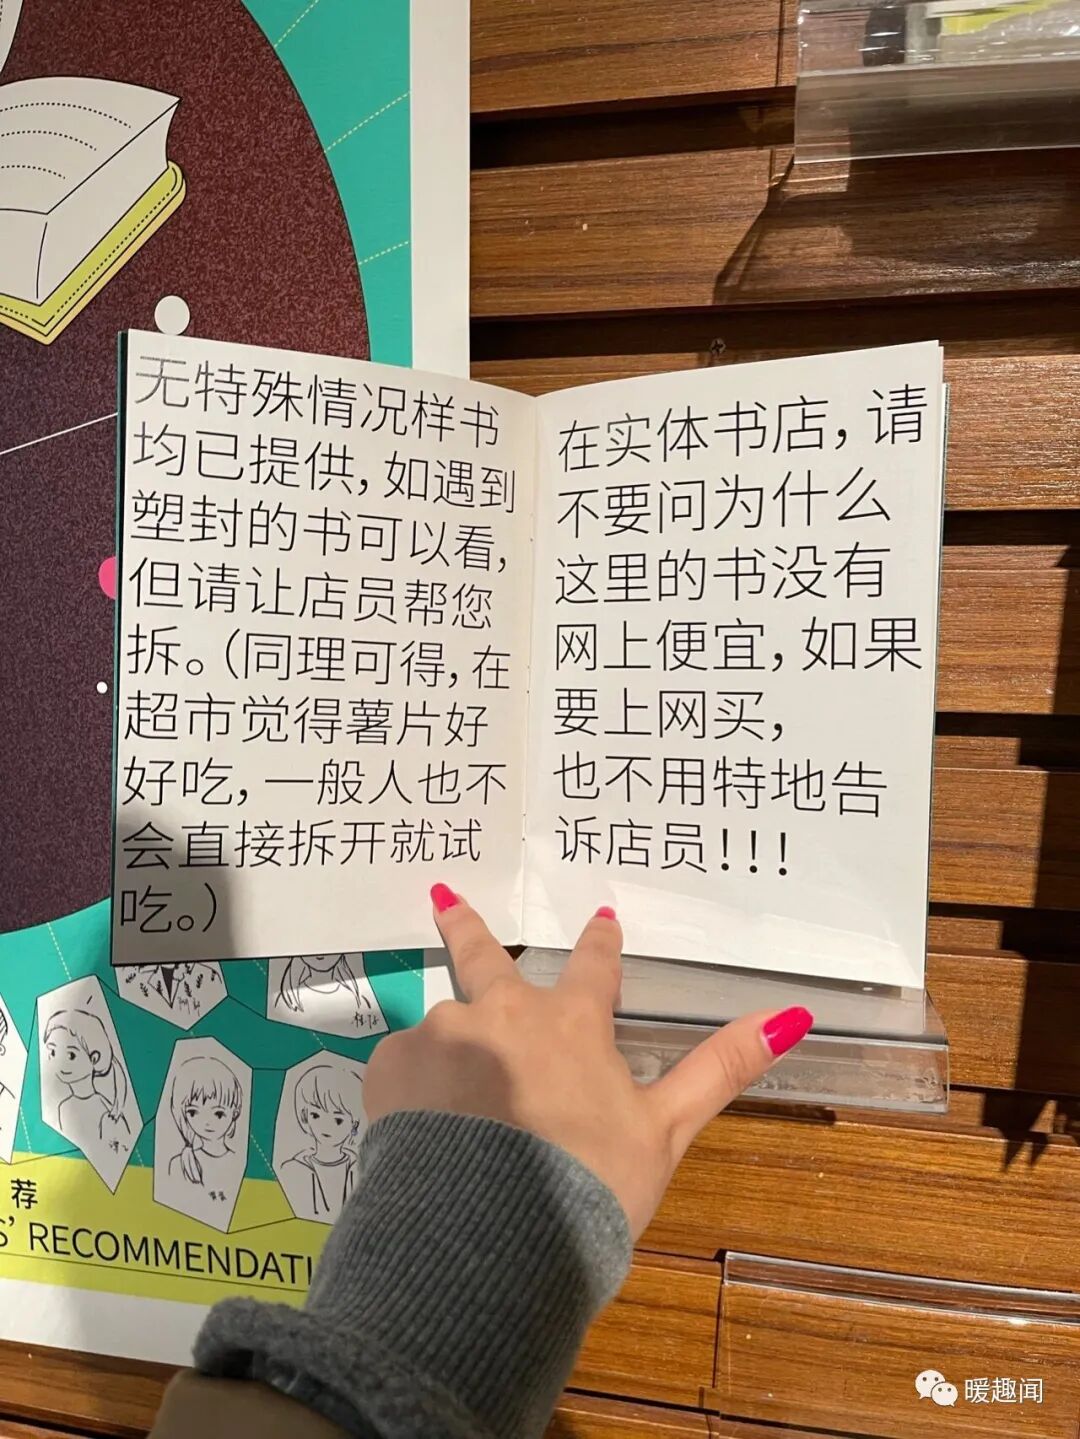 无特殊情况样书
均已提供，如遇到
塑封的书可以看，
但请让店员帮您
拆。（同理可得，在
超市觉得薯片好
好吃，一般人也不
会直接拆开就试
吃。）
在实体书店，请
不要问为什么
这里的书没有
网上便宜，如果
要上网买，
也不用特地告
诉店员！！！
荐
S' RECOMMENDATI
暖趣闻